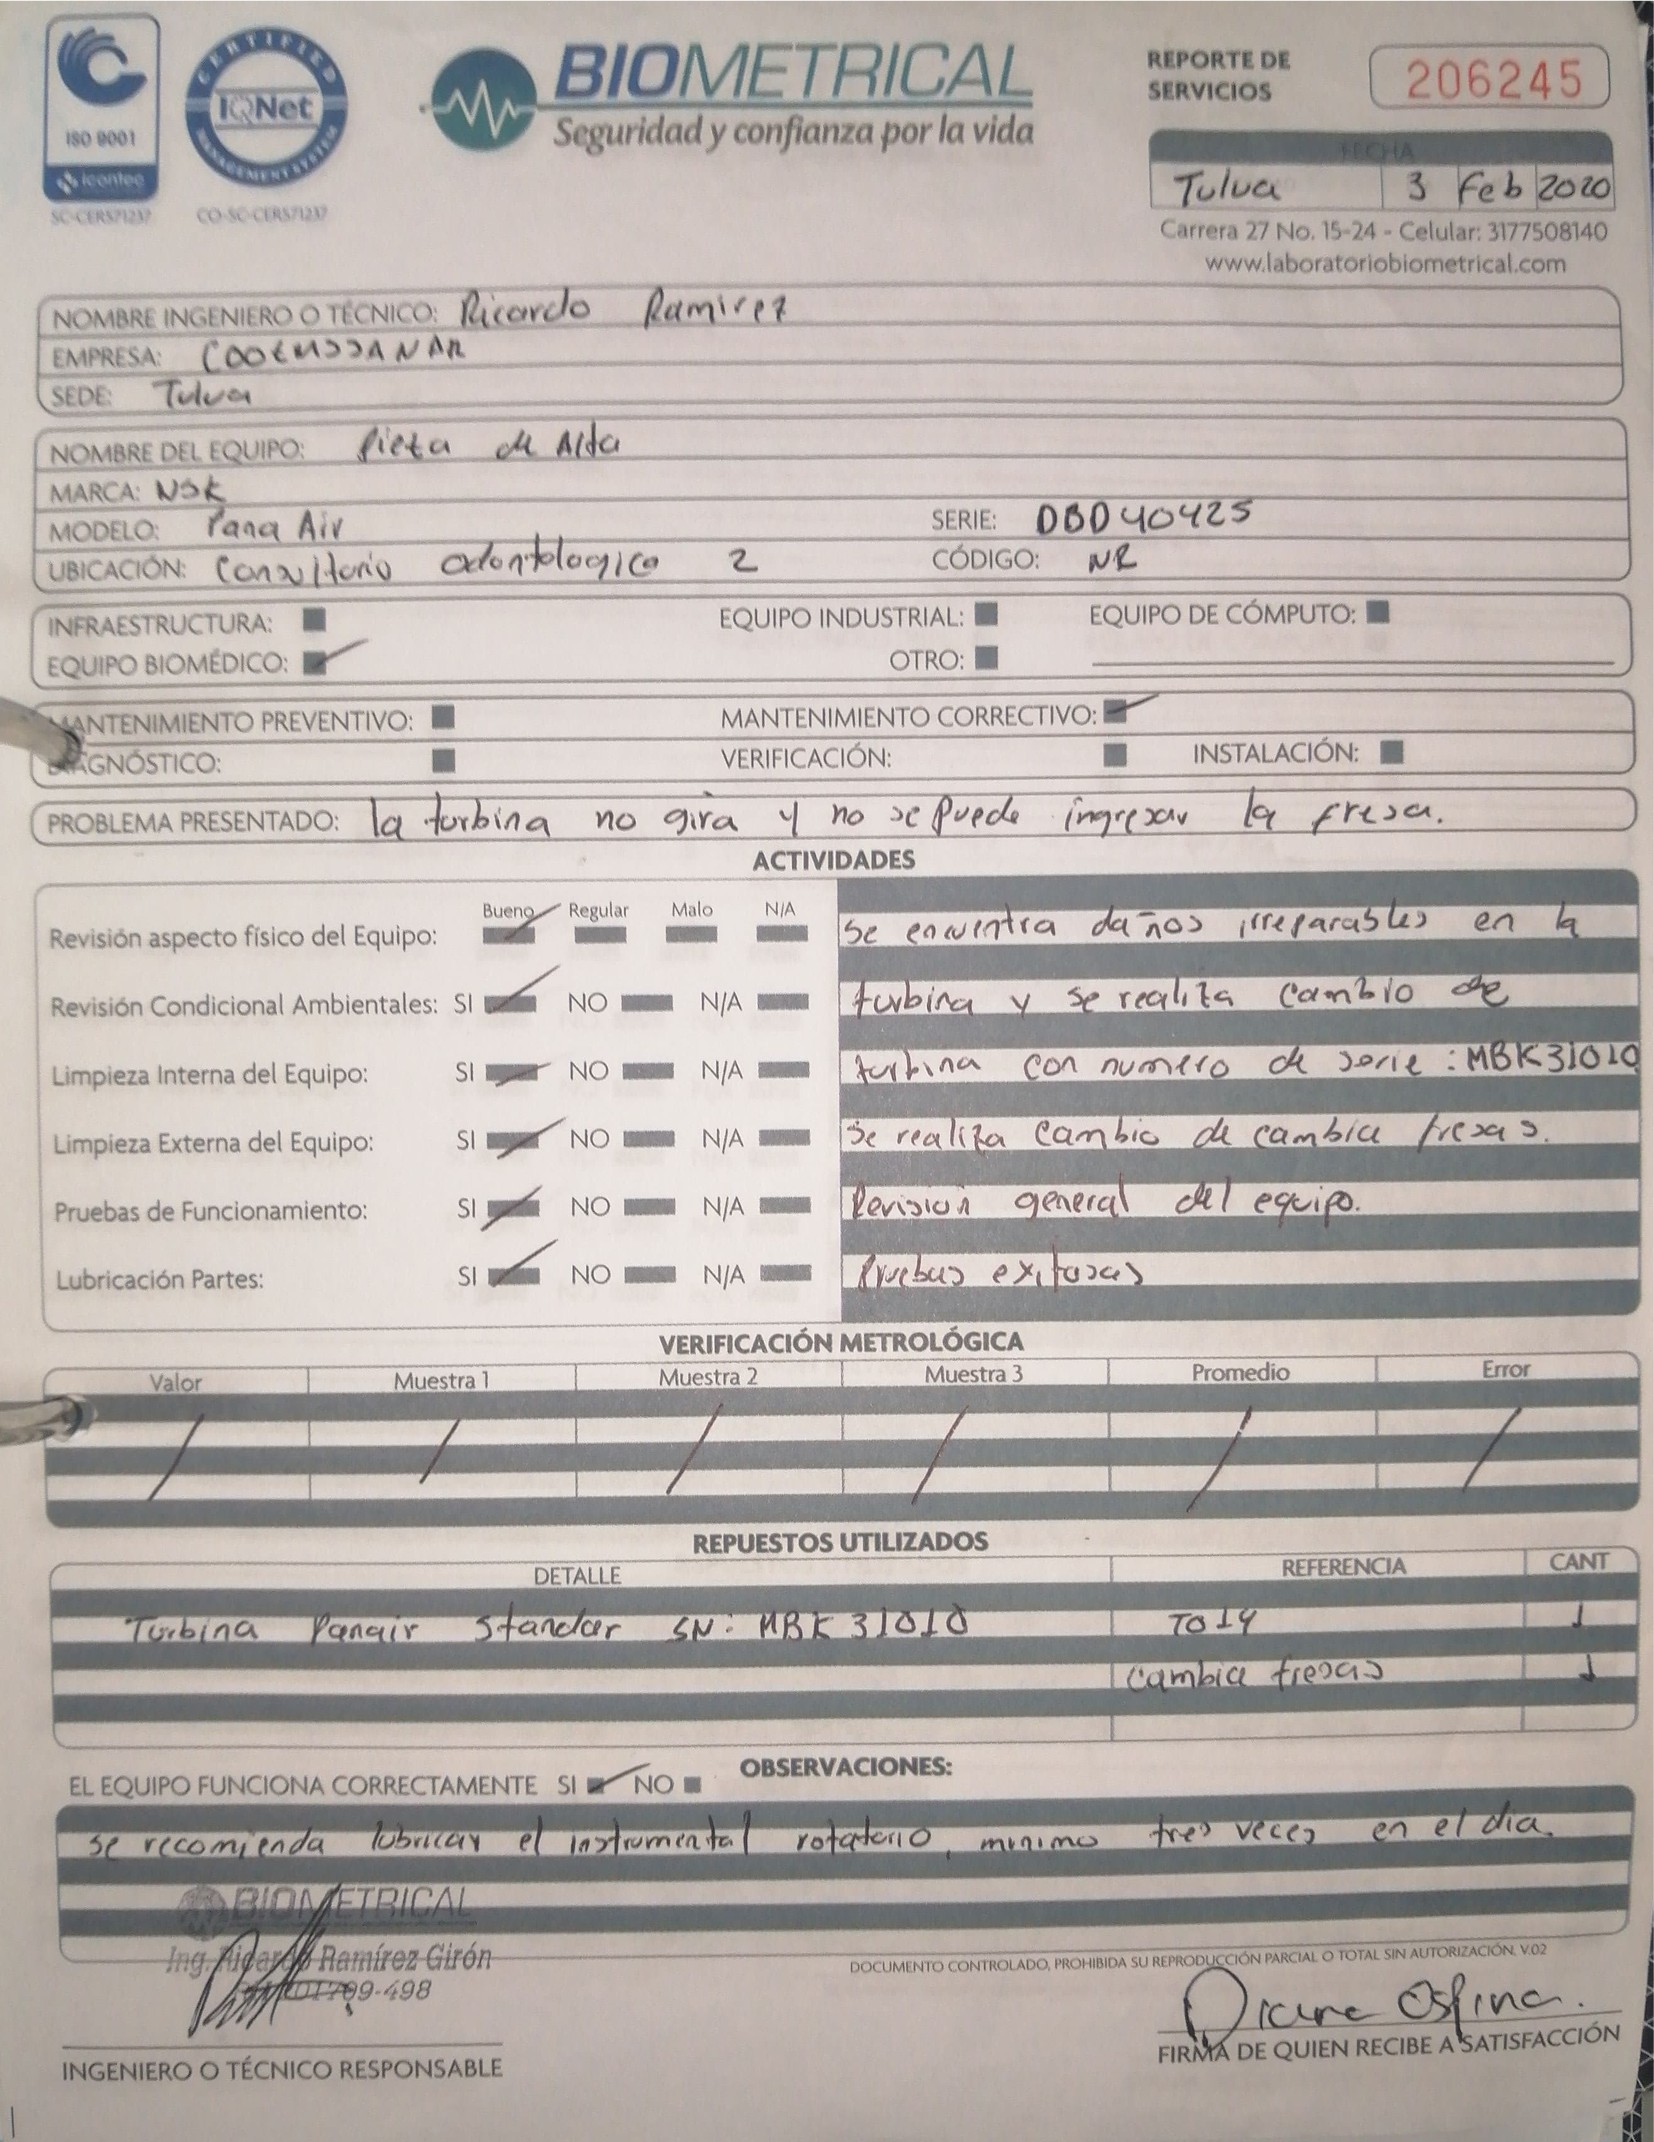 ISO 9001
icontec
SC-CER571237
CERTIFIED
IQNet
MANAGEMENT SYSTEM
CO-SC-CER571237
BIOMETRICAL
Seguridad y confianza por la vida
REPORTE DE
SERVICIOS
206245
FECHA
Tulua 3 Feb 2020
Carrera 27 No. 15-24 - Celular: 3177508140
www.laboratoriobiometrical.com
NOMBRE INGENIERO O TÉCNICO: Ricardo Ramirez
EMPRESA: COOEMSSANAR
SEDE: Tulua
NOMBRE DEL EQUIPO: Pieza de Alta
MARCA: NSK
MODELO: Pana Air SERIE: DBD40425
UBICACIÓN: Consultorio odontologico 2 CÓDIGO: NR
INFRAESTRUCTURA: EQUIPO INDUSTRIAL: EQUIPO DE CÓMPUTO:
EQUIPO BIOMÉDICO: OTRO:
MANTENIMIENTO PREVENTIVO: MANTENIMIENTO CORRECTIVO:
DIAGNÓSTICO: VERIFICACIÓN: INSTALACIÓN:
PROBLEMA PRESENTADO: la turbina no gira y no se puede ingresar la fresa.
ACTIVIDADES
Bueno Regular Malo N/A
Revisión aspecto físico del Equipo: se encuentra daños irreparables en la
Revisión Condicional Ambientales: SI NO N/A turbina y se realiza cambio de
Limpieza Interna del Equipo: SI NO N/A turbina con numero de serie: MBK31010
Limpieza Externa del Equipo: SI NO N/A Se realiza cambio de cambia fresas.
Pruebas de Funcionamiento: SI NO N/A Revision general del equipo.
Lubricación Partes: SI NO N/A Pruebas exitosas
VERIFICACIÓN METROLÓGICA
Valor Muestra 1 Muestra 2 Muestra 3 Promedio Error
REPUESTOS UTILIZADOS
DETALLE REFERENCIA CANT
Turbina Panair Standar SN: MBK 31010 TO14 1
Cambia fresas 1
OBSERVACIONES:
EL EQUIPO FUNCIONA CORRECTAMENTE SI NO
se recomienda lubricar el instrumental rotatorio, minimo tres veces en el dia.
BIOMETRICAL
Ing. Ricardo Ramírez Girón
709-498
DOCUMENTO CONTROLADO, PROHIBIDA SU REPRODUCCIÓN PARCIAL O TOTAL SIN AUTORIZACIÓN. V.02
Diana Ospina.
INGENIERO O TÉCNICO RESPONSABLE
FIRMA DE QUIEN RECIBE A SATISFACCIÓN